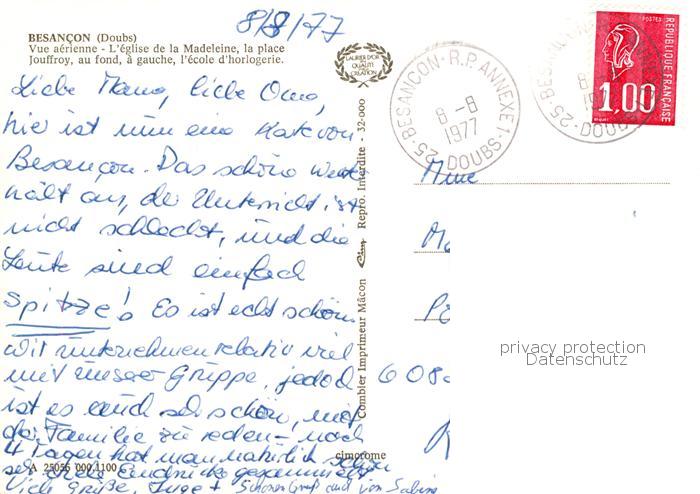 8/8/77
BESANÇON (Doubs)
Vue aérienne - L'église de la Madeleine, la place
Jouffroy, au fond, à gauche, l'école d'horlogerie.
LAURIER D'OR
DE LA
QUALITÉ
CRÉATION
Liebe Mama, liebe Oma,
hier ist nun eine Karte von
Besançon. Das schöne Wetter
hält an, der Unterricht ist
nicht schlecht, und die
Leute sind einfach
Spitze! Es ist echt schön.
Wir unternehmen relativ viel
mit unserer Gruppe, jedoch
ist es auch sehr schön, mit
der Familie zu reden - nach
4 Tagen hat man natürlich schon
sehr viele Eindrücke gesammelt
Viele Grüße, Inge + Schönen Gruß auch von Sabine
A 25056 000 1100
cimorome
Combier Imprimeur Mâcon Cim Repro. Interdite - 32-000
25 - BESANÇON - R.P. ANNEXE 1 - DOUBS
8 - 8
1977
POSTES
RÉPUBLIQUE FRANÇAISE
1,00
Mme
608
privacy protection
Datenschutz